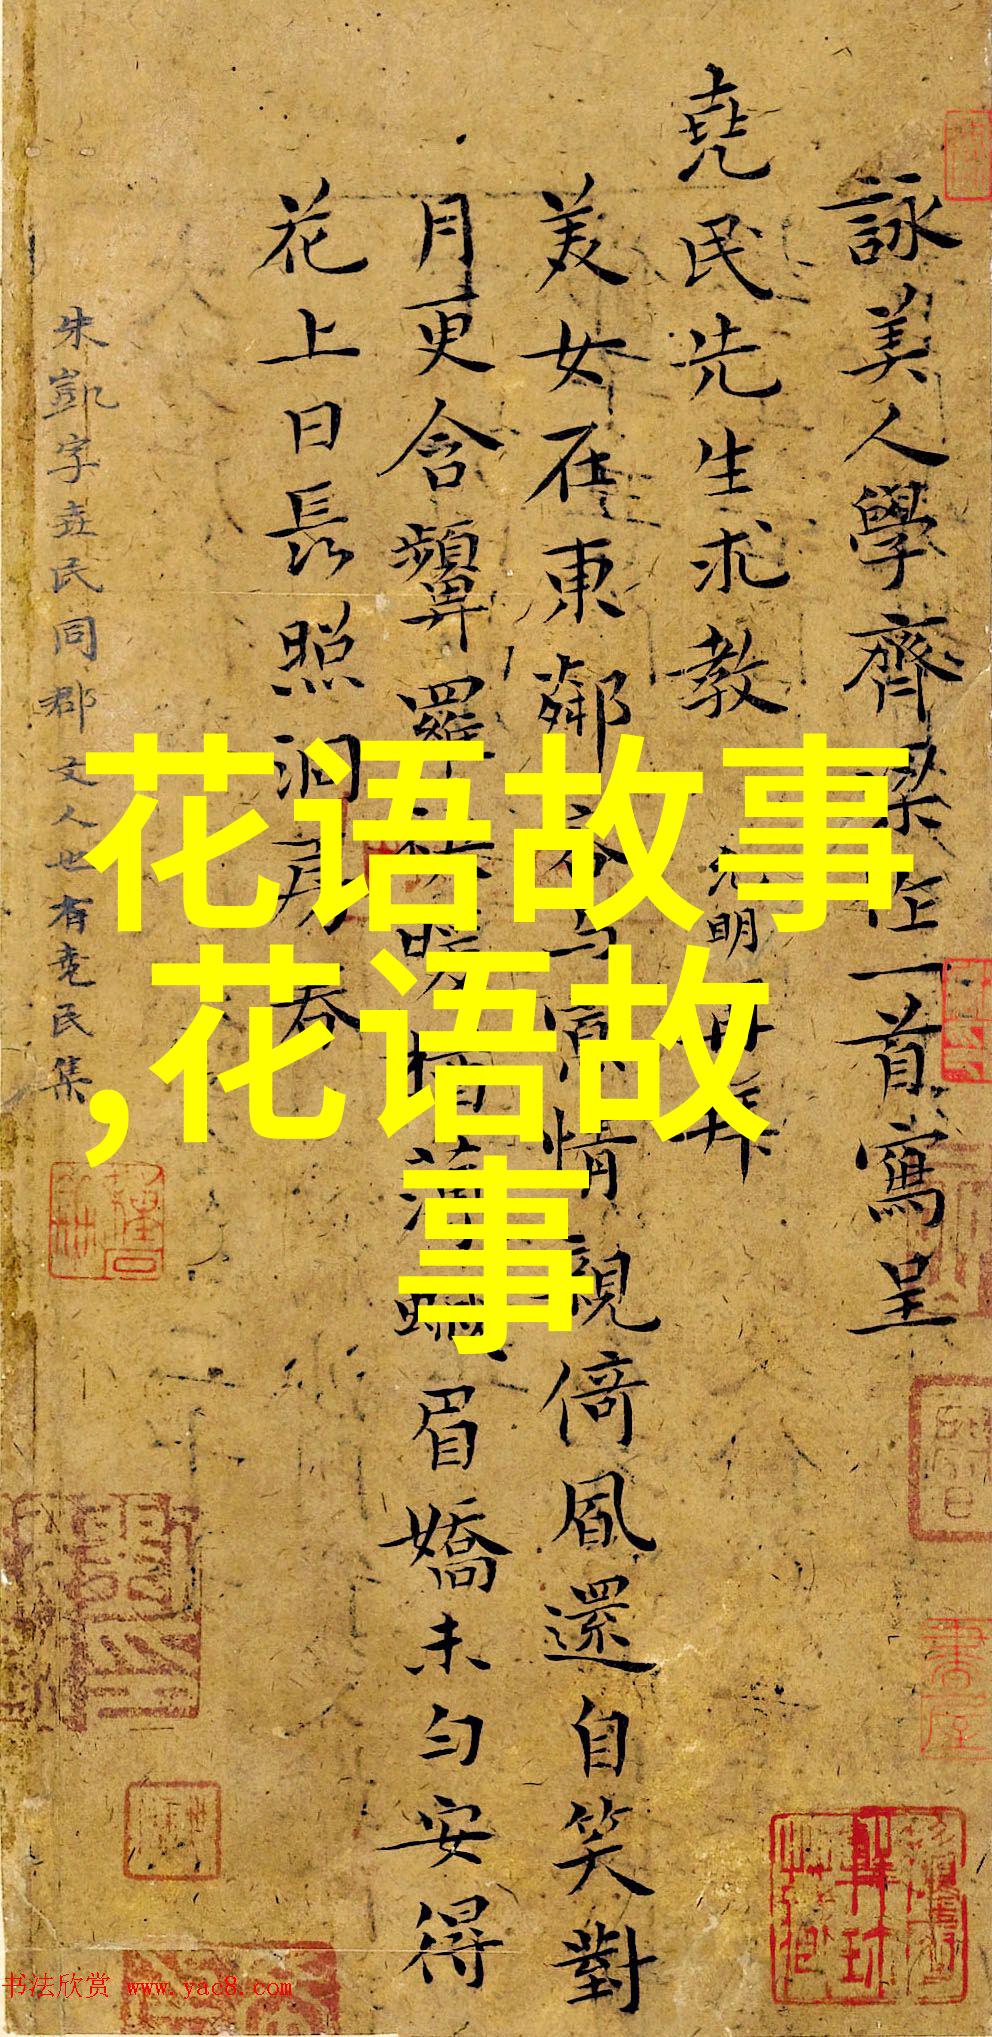 詠美人學齊梁作一首寫呈
堯民先生求教 明再拜
美女在東鄰 情親倚風還自笑對
月更含顰羅 暖 薄 眉嬌未勻安得
花上日長照洞房春
朱凱字堯民同郡文人也有堯民集
花语故事
,花语故
事
书法欣赏 www.yac8.com